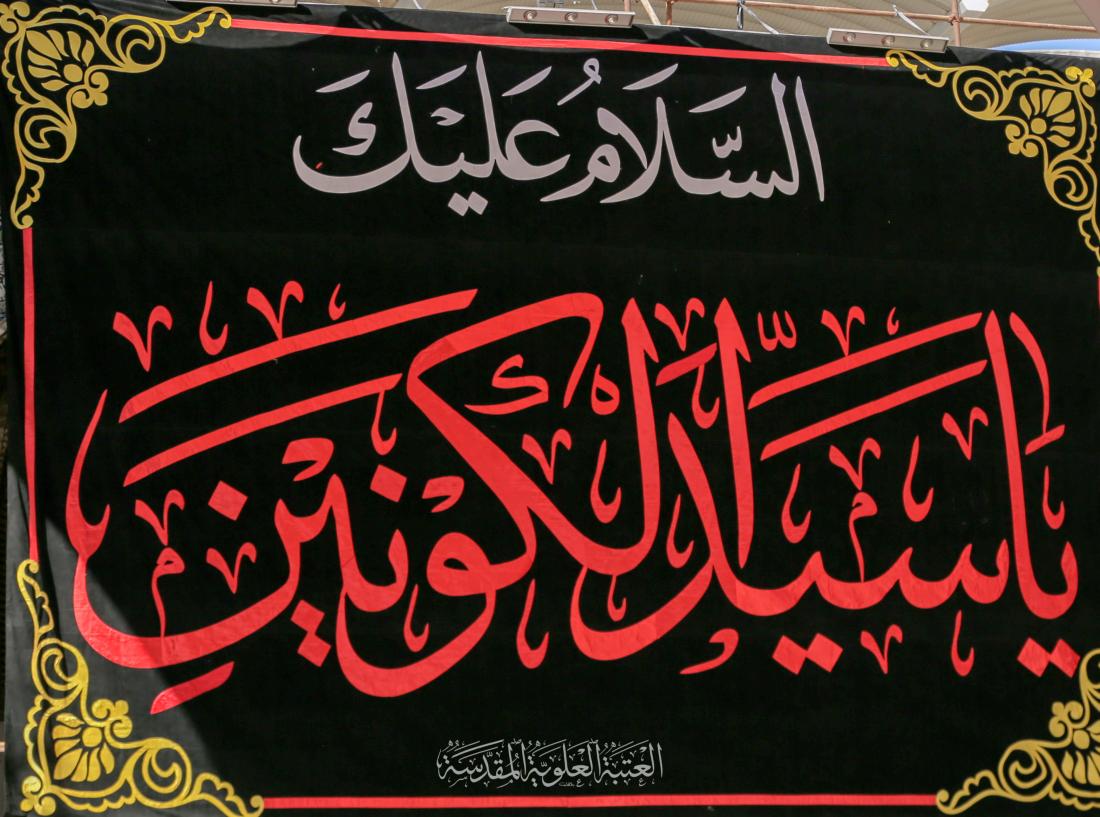 السَّلَامُ عَلَيْكَ
يَا سَيِّدَ الْكَوْنَيْنِ
العتبة العلوية المقدسة